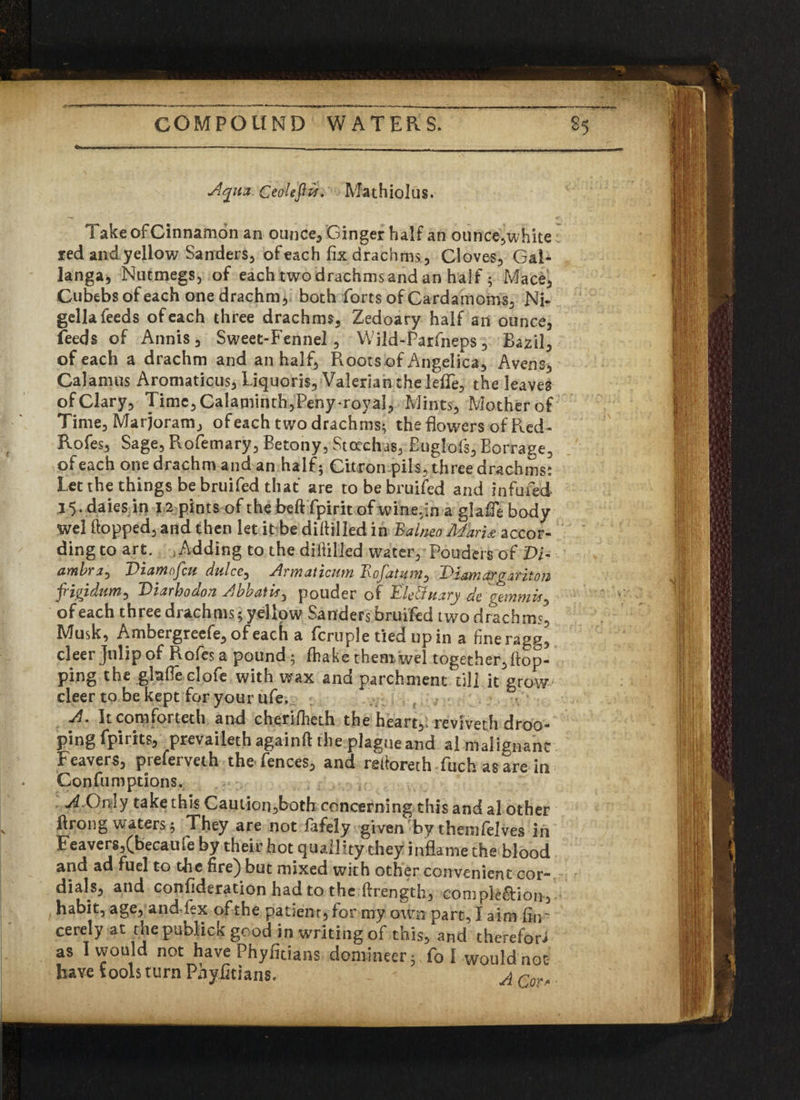 COMPOUND WATERS. 85
Aqua Cœlestis. Mathiolus.
Take of Cinnamon an ounce, Ginger half an ounce, white
red and yellow Sanders, of each ſix drachms, Cloves, Gal-
langa, Nutmegs, of each two drachms and an half; Mace,
Cubebs of each one drachm, both ſorts of Cardamoms, Ni-
gella ſeeds of each three drachms, Zedoary half an ounce,
ſeeds of Annis, Sweet-Fennel, Wild-Parſneps, Bazil,
of each a drachm and an half, Roots of Angelica, Avens,
Calamus Aromaticus, Liquoris, Valerian the leſſe, the leaves
of Clary, Time, Calaminth, Peny-royal, Mints, Mother of
Time, Marjoram, of each two drachms; the flowers of Red-
Roſes, Sage, Roſemary, Betony, Stœchas, Bugloſs, Borrage,
of each one drachm and an half; Citron pils, three drachms:
Let the things be bruiſed that are to be bruiſed and infuſed
15. daies in 12 pints of the beſt ſpirit of wine, in a glaſſe body
wel ſtopped, and then let it be diſtilled in Balneo Mariæ accor-
ding to art. Adding to the diſtilled water, Pouders of Di-
ambra, Diamoſcu dulce, Armaticum Roſatum, Diamargariton
frigidum, Diarhodon Abbatis, pouder of Electuary de gemmis,
of each three drachms; yellow Sanders bruiſed two drachms,
Musk, Ambergreeſe, of each a ſcruple tied up in a fine ragg,
cleer Julip of Roſes a pound; ſhake them wel together, ſtop-
ping the glaſſe cloſe with wax and parchment till it grow
cleer to be kept for your uſe.
A. It comforteth and cheriſheth the heart, reviveth droo-
ping ſpirits, prevaileth againſt the plague and al malignant
Feavers, preſerveth the ſences, and reſtoreth ſuch as are in
Conſumptions.
A Only take this Caution, both concerning this and al other
ſtrong waters; They are not ſafely given by themſelves in
Feavers, (becauſe by their hot quallity they inflame the blood
and ad fuel to the fire) but mixed with other convenient cor-
dials, and conſideration had to the ſtrength, complection,
habit, age, and ſex of the patient, for my own part, I aim ſin-
cerely at the publick good in writing of this, and therefore
as I would not have Phyſitians domineer; ſo I would not
have fools turn Phyſitians. A Cor-